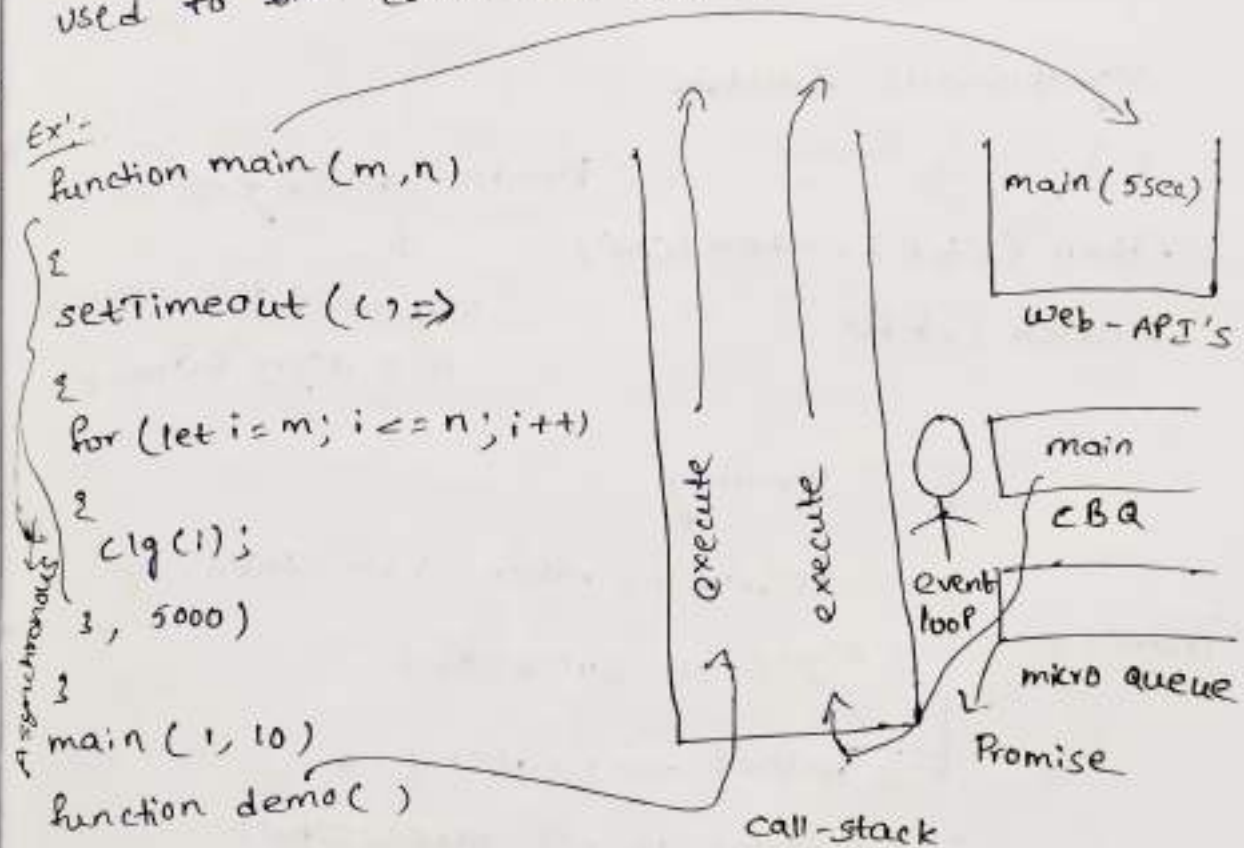 used to
Ex:-
function main (m,n)
{
setTimeout (()=>
{
for (let i = m; i <= n; i++)
{
clg (i);
}, 5000)
}
main (1, 10)
function demo( )
Asynchronous
execute
execute
call-stack
main (5sec)
Web-API's
event
loop
main
CBQ
micro Queue
Promise